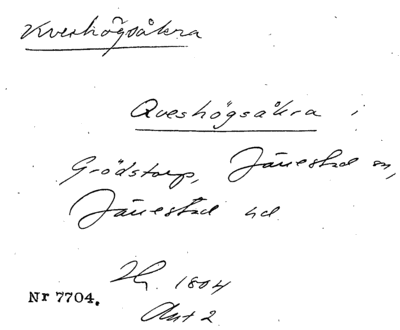 Kveshögsåkra
Qveshögsåkra i
Grödstorp, Järrestad sn,
Järrestad hd
1804
Nr 7704.
Akt 2